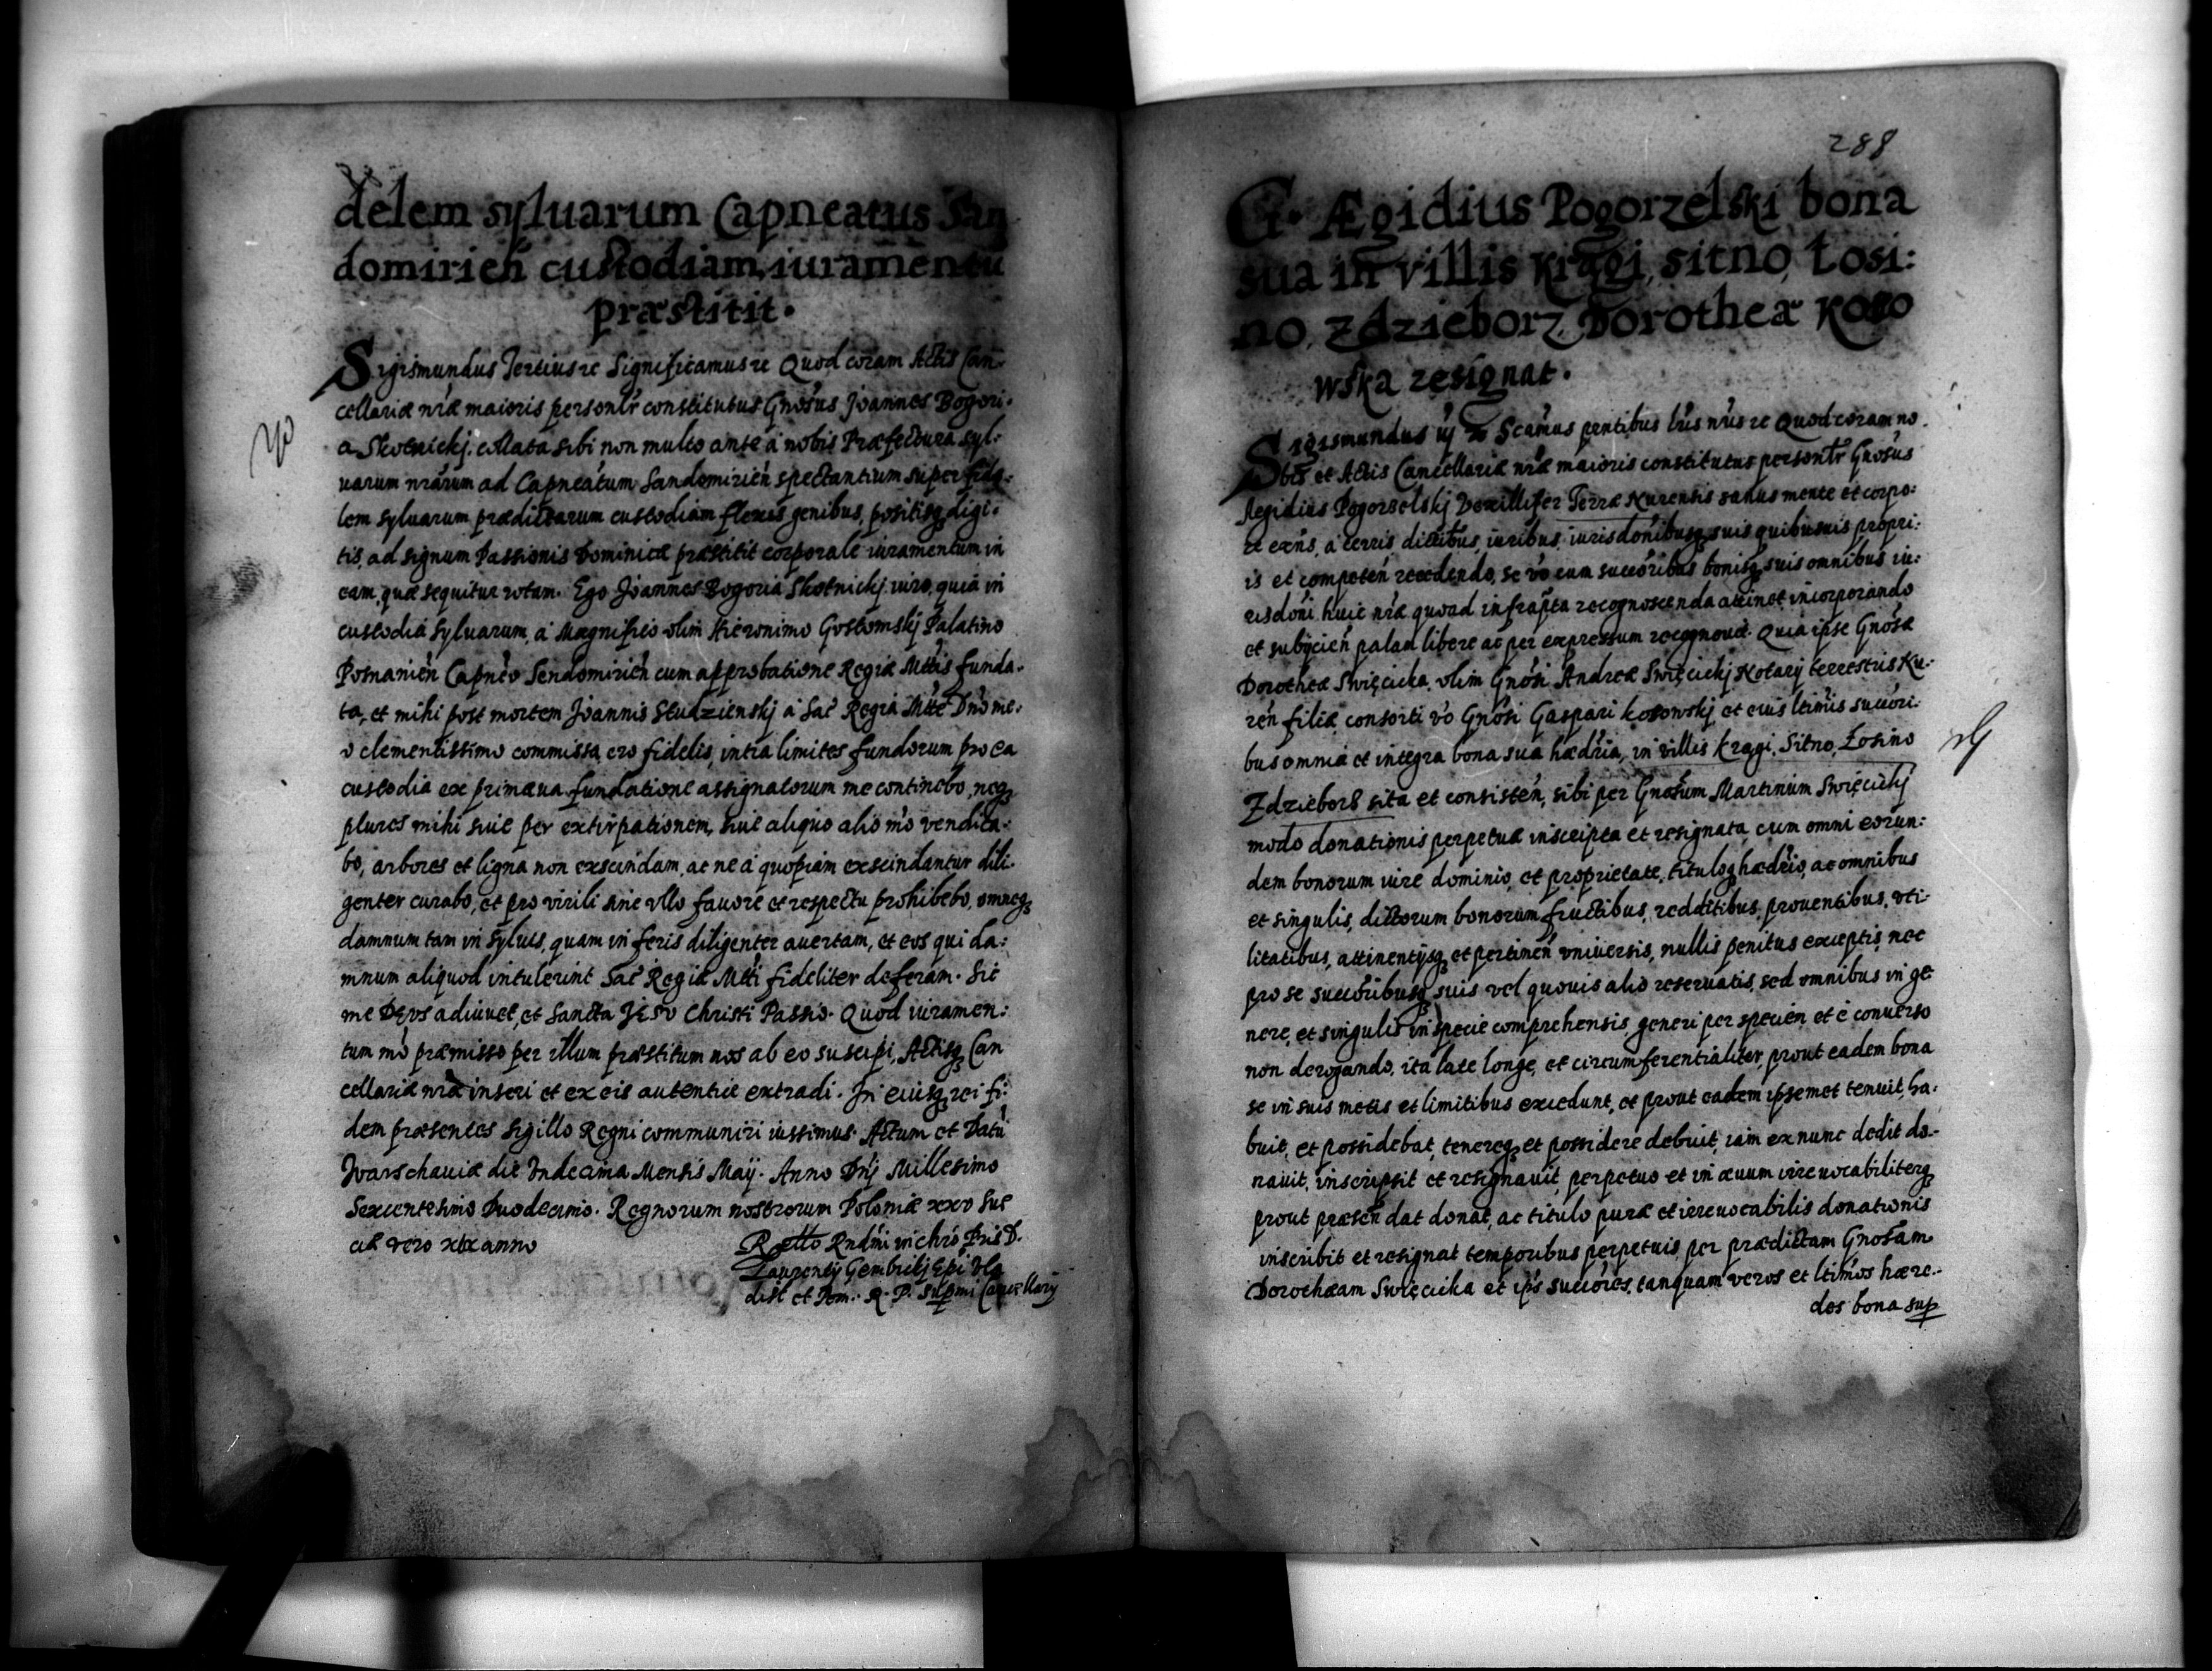 delem syluarum Capneatus San
domirien̄ custodiam, iuramentū
præstitit.
Sigismundus Tertius rc Significamus rc Quod coram Actis Can
cellariæ nr̄æ maioris personlr̄ constitutus Gnōsus Joannes Bogori-
a Skotnickj, collata sibi non multo ante à nobis Præfectura syl-
uarum nrārum ad Capneātum Sandomirien̄ spectantium super fide-
lem syluarum prædictarum custodiam flexis genibus, positisq digi-
tis, ad signum Passionis Dominicæ præstitit corporale iuramentum in
eam, quæ sequitur rotam. Ego Joannes Bogoria Skotnickj iuro, quia in
custodiā syluarum, à Magnifico olim Hieronimo Gostomskj Palatino
Posnanien̄ Capnēo Sendomirien̄ cum approbatione Regiæ Mttis funda-
ta, et mihi post mortem Joannis Studzienskj à Sac̄ Regia Mtte Dn̄o me-
o clementissimo commissa, ero fidelis, intra limites fundorum pro ea
custodia ex primæua fundatione assignatorum me continebo, neq
plures mihi siue per extirpationem, siue aliquo alio mō vendica-
bo, arbores et ligna non exscindam, ac ne à quopiam exscindantur dili-
genter curabo, et pro virili sine vllo fauore et respectu prohibebo, omneq
damnum tam in syluis, quam in feris diligenter auertam, et eos qui da:
mnum aliquod intulerint Sac̄ Regiæ Mtti fideliter deferam. Sic
me DEVS adiuuet, et Sancta JESV Christi Passio. Quod iuramen:
tum mō præmisso per illum præstitum nos ab eo suscipi, Actisq Can
cellariæ nrǣ inseri et ex eis autentice extradi. In cuiusq rei fi:
dem præsentes Sigillo Regni communiri iussimus. Actum et Datū
Warschauiæ die Vndecima Mensis Maÿ. Anno Dnj Millesimo
Sexcentesimo Duodecimo. Regnorum nostrorum Poloniæ xxv Sue
ciæ vero xix anno
R ello Rndmi in chrō Pris D.
Laurentij Gembickj Epi Vla
disl et Pom. R. P. Suprmi Cancellarij
288
G. Ægidius Pogorzelski bona
sua in villis Kragi, Sitno, Łosi:
no, Zdzieborz Dorotheæ Koso
wska resignat.
Sigismundus iij rc Scamus pntibus lrīs nrīs rc Quod coram no
bis et Actis Cancellariæ nrǣ maioris constitutus personlr̄ Gnōsus
Aegidius Pogorzelskj Vexillifer Terræ Nurensis sanus mente et corpo:
re exn̄s, à terris distribus, iuribus, iurisdōnibusq suis quibusuis propri:
is et competen̄ recedendo, se vō cum succōribus bonisq suis omnibus iu:
risdōni huic nr̄æ quoad infrap̄ta recognoscenda attinet incorporando
et subijcien̄ palam libere ac per expressum recognouit. Quia ipse Gnōsæ
Dorotheæ Swięcicka, olim Gnōsi Andreæ Swięcickj Notarij terrestris Nu-
ren̄ filiæ, consorti vō Gnōsi Gaspari Kosowskj et eius ltimis succōri:
bus omnia et integra bona sua hæd̄ria, in villis Kragi, Sitno, Łosino
Zdzieborz sita et consisten̄, sibi per Gnōsum Martinum Swięcickj
modo donationis perpetuæ inscripta et resignata, cum omni eorun:
dem bonorum iure dominio, et proprietate, tituloq hæd̄rio, ac omnibus
et singulis, dictorum bonorum fructibus, redditibus, prouentibus, vti-
litatibus, attinentijsq et pertinen̄ vniuersis, nullis penitus exceptis, nec
pro se succōribusq suis vel quouis alio reseruatis, sed omnibus in ge
nere, et singulis in specie comprehensis, generi per speciem et è conuerso
non derogando, ita late longe, et circumferentialiter, prout eadem bona
se in suis metis et limitibus excedunt, et prout eadem ipsemet tenuit, ha:
buit, et possidebat, tenereq et possidere debuit, iam ex nunc dedit do-
nauit, inscripsit et resignauit perpetuo et in æuum irreuocabiliterq
prout præsen̄ dat donat, ac titulo puræ et irreuocabilis donationis
inscribit et resignat temporibus perpetuis, per prædictam Gnōsam
Dorotheam Swięcicka et ip̄s succōres, tanquam veros et ltimos hære-
des bona sup